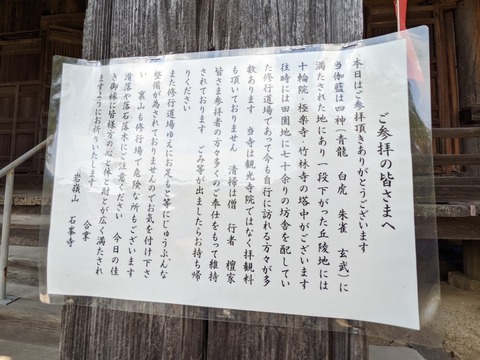 ご参拝の皆さまへ
本日はご参拝頂きありがとうございます
当伽藍は四神(青龍　白虎　朱雀　玄武)に
満たされた地にあり一段下がった丘陵地には
十輪院 極楽寺・竹林寺の塔中がございます
往時には田園地に七十余りの坊舎を配してい
た修行道場であって今も自行に訪れる方々が多
数あります　当寺は観光寺院ではなく拝観料
も頂いておりません　清掃は僧　行者　檀家
さま参拝者の方々多くのご奉仕をもって維持
されております　ごみ等が出ましたらお持ち帰
りください
また修行道場ゆえにお足もと等にじゅうぶんな
整備が為されておりませんのでお気を付け下さ
い　裏山も修行場で危険な所もございます
滑落や落石落木にご注意ください　今日の佳
き御縁に皆様方の心と体と財とが広く満たされ
ますようにお祈りいたします
合掌
岩嶺山　石峯寺